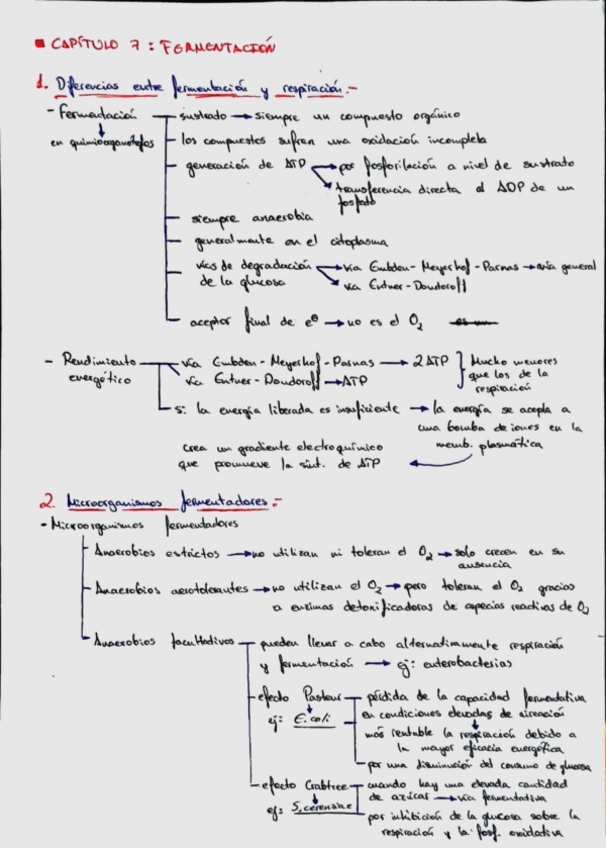 ▪ CAPÍTULO 7: FERMENTACIÓN
1. Diferencias entre fermentación y respiración.-
- Fermentación → sustrato → siempre un compuesto orgánico
en quimioorganótrofos
los compuestos sufren una oxidación incompleta
generación de ATP → por fosforilación a nivel de sustrato
transferencia directa al ADP de un
fosfato
siempre anaerobia
generalmente en el citoplasma
vías de degradación → vía Embden-Meyerhof-Parnas → vía general
de la glucosa → vía Entner-Doudoroff
aceptor final de e⊖ → no es el O2
- Rendimiento → vía Embden-Meyerhof-Parnas → 2 ATP } Mucho menores
energético vía Entner-Doudoroff → ATP que los de la
respiración
si la energía liberada es insuficiente → la energía se acopla a
una bomba de iones en la
memb. plasmática
crea un gradiente electroquímico
que promueve la sínt. de ATP
2. Microorganismos fermentadores.-
- Microorganismos fermentadores
Anaerobios estrictos → no utilizan ni toleran el O2 → solo crecen en su
ausencia
Anaerobios aerotolerantes → no utilizan el O2 → pero toleran el O2 gracias
a enzimas detoxificadoras de especies reactivas de O2
Anaerobios facultativos → pueden llevar a cabo alternativamente respiración
y fermentación → ej: enterobacterias
efecto Pasteur → pérdida de la capacidad fermentativa
ej: E. coli en condiciones elevadas de aireación
más rentable la respiración debido a
la mayor eficacia energética
por una disminución del consumo de glucosa
efecto Crabtree → cuando hay una elevada cantidad
de azúcar → vía fermentativa
ej: S. cerevisiae
por inhibición de la glucosa sobre la
respiración y la fosf. oxidativa